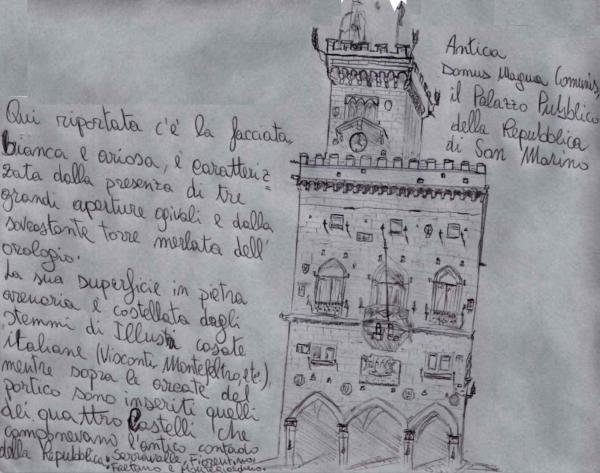 Antica
Domus Magna Comunis,
il Palazzo Pubblico
della Repubblica
di San Marino
Qui riportata c'è la facciata,
bianca e ariosa, è caratteriz=
zata dalla presenza di tre
grandi aperture ogivali e dalla
sovrastante torre merlata dell'
orologio.
La sua superficie in pietra
arenaria è costellata dagli
stemmi di Illustri casate
italiane (Visconti, Montefeltro, etc.),
mentre sopra le arcate del
portico sono inseriti quelli
dei quattro Castelli che
componevano l'antico contado
della Repubblica: Serravalle, Fiorentino,
Faetano e Montegiardino.